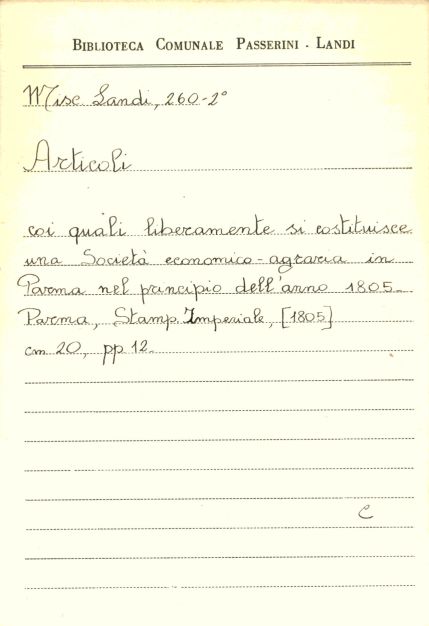 BIBLIOTECA COMUNALE PASSERINI - LANDI
Misc Landi, 260-2°
Articoli
coi quali liberamente si costituisce
una Società economico-agraria in
Parma nel principio dell'anno 1805-
Parma, Stamp. Imperiale, [1805]
cm 20, pp 12-
C